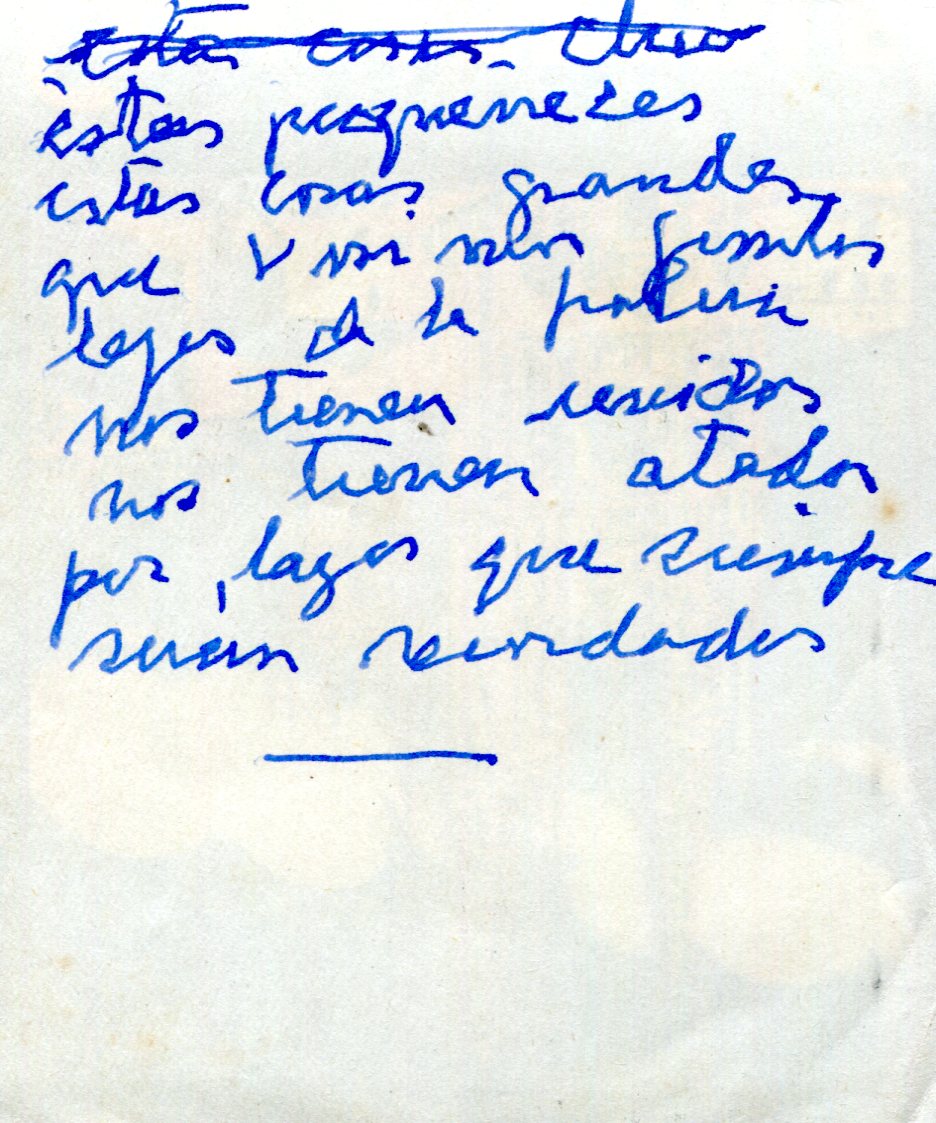 estas cosas
estas pequeñeces
estas cosas grandes
que vivimos juntos
lejos de la patria
nos tienen unidos
nos tienen atados
por lazos que siempre
serán